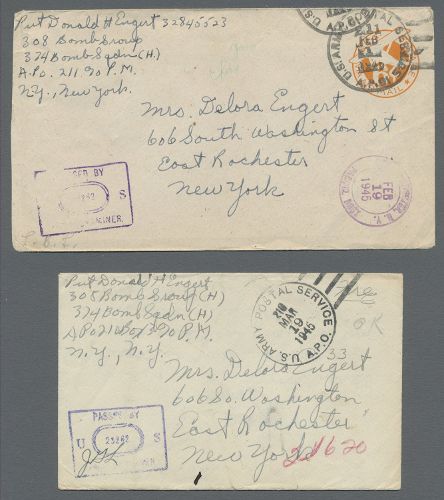 Pvt Donald H Engert 32845523
308 Bomb Group
374 Bomb Sqdn (H)
A.P.O. 211 % P.M.
N.Y., New York.
U.S. ARMY POSTAL SERVICE
A.P.O.
211
FEB
11
MAIL
Mrs. Delora Engert
606 South Washington St
East Rochester
New York
BY
S
FEB
19
1945
Pvt Donald H Engert
308 Bomb Group (H)
374 Bomb Sqdn (H)
APO 211 Box 390 P.M.
N.Y., N.Y.
U.S. ARMY POSTAL SERVICE
A.P.O.
210
MAR
19
1945
Free
OK
33
Mrs. Delora Engert
606 So. Washington
East Rochester
New York
21620
PASSED BY
U 25262 S